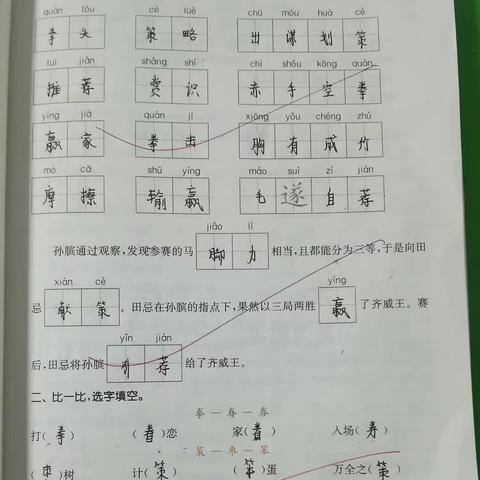 quán tóu cè lüè chū móu huà cè
拳头 策略 出谋划策
tuī jiàn shǎng shí chì shǒu kōng quán
推荐 赏识 赤手空拳
yíng jiā quán jī xiōng yǒu chéng zhú
赢家 拳击 胸有成竹
mó cā shū yíng máo suì zì jiàn
摩擦 输赢 毛遂自荐
jiǎo lì
孙膑通过观察,发现参赛的马 脚力 相当,且都能分为三等,于是向田
xiàn cè yíng
忌 献策 。田忌在孙膑的指点下,果然以三局两胜 赢 了齐威王。赛
yǐn jiàn
后,田忌将孙膑 引荐 给了齐威王。
二、比一比,选字填空。
拳 — 眷 — 券
打(拳) (眷)恋 家(眷) 入场(券)
策 — 枣 — 笨
(枣)树 计(策) (笨)蛋 万全之(策)